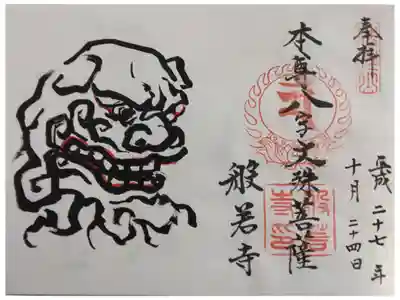 奉拝
本尊八字文殊菩薩
般若寺
平成二十七年
十月二十四日
般若寺印